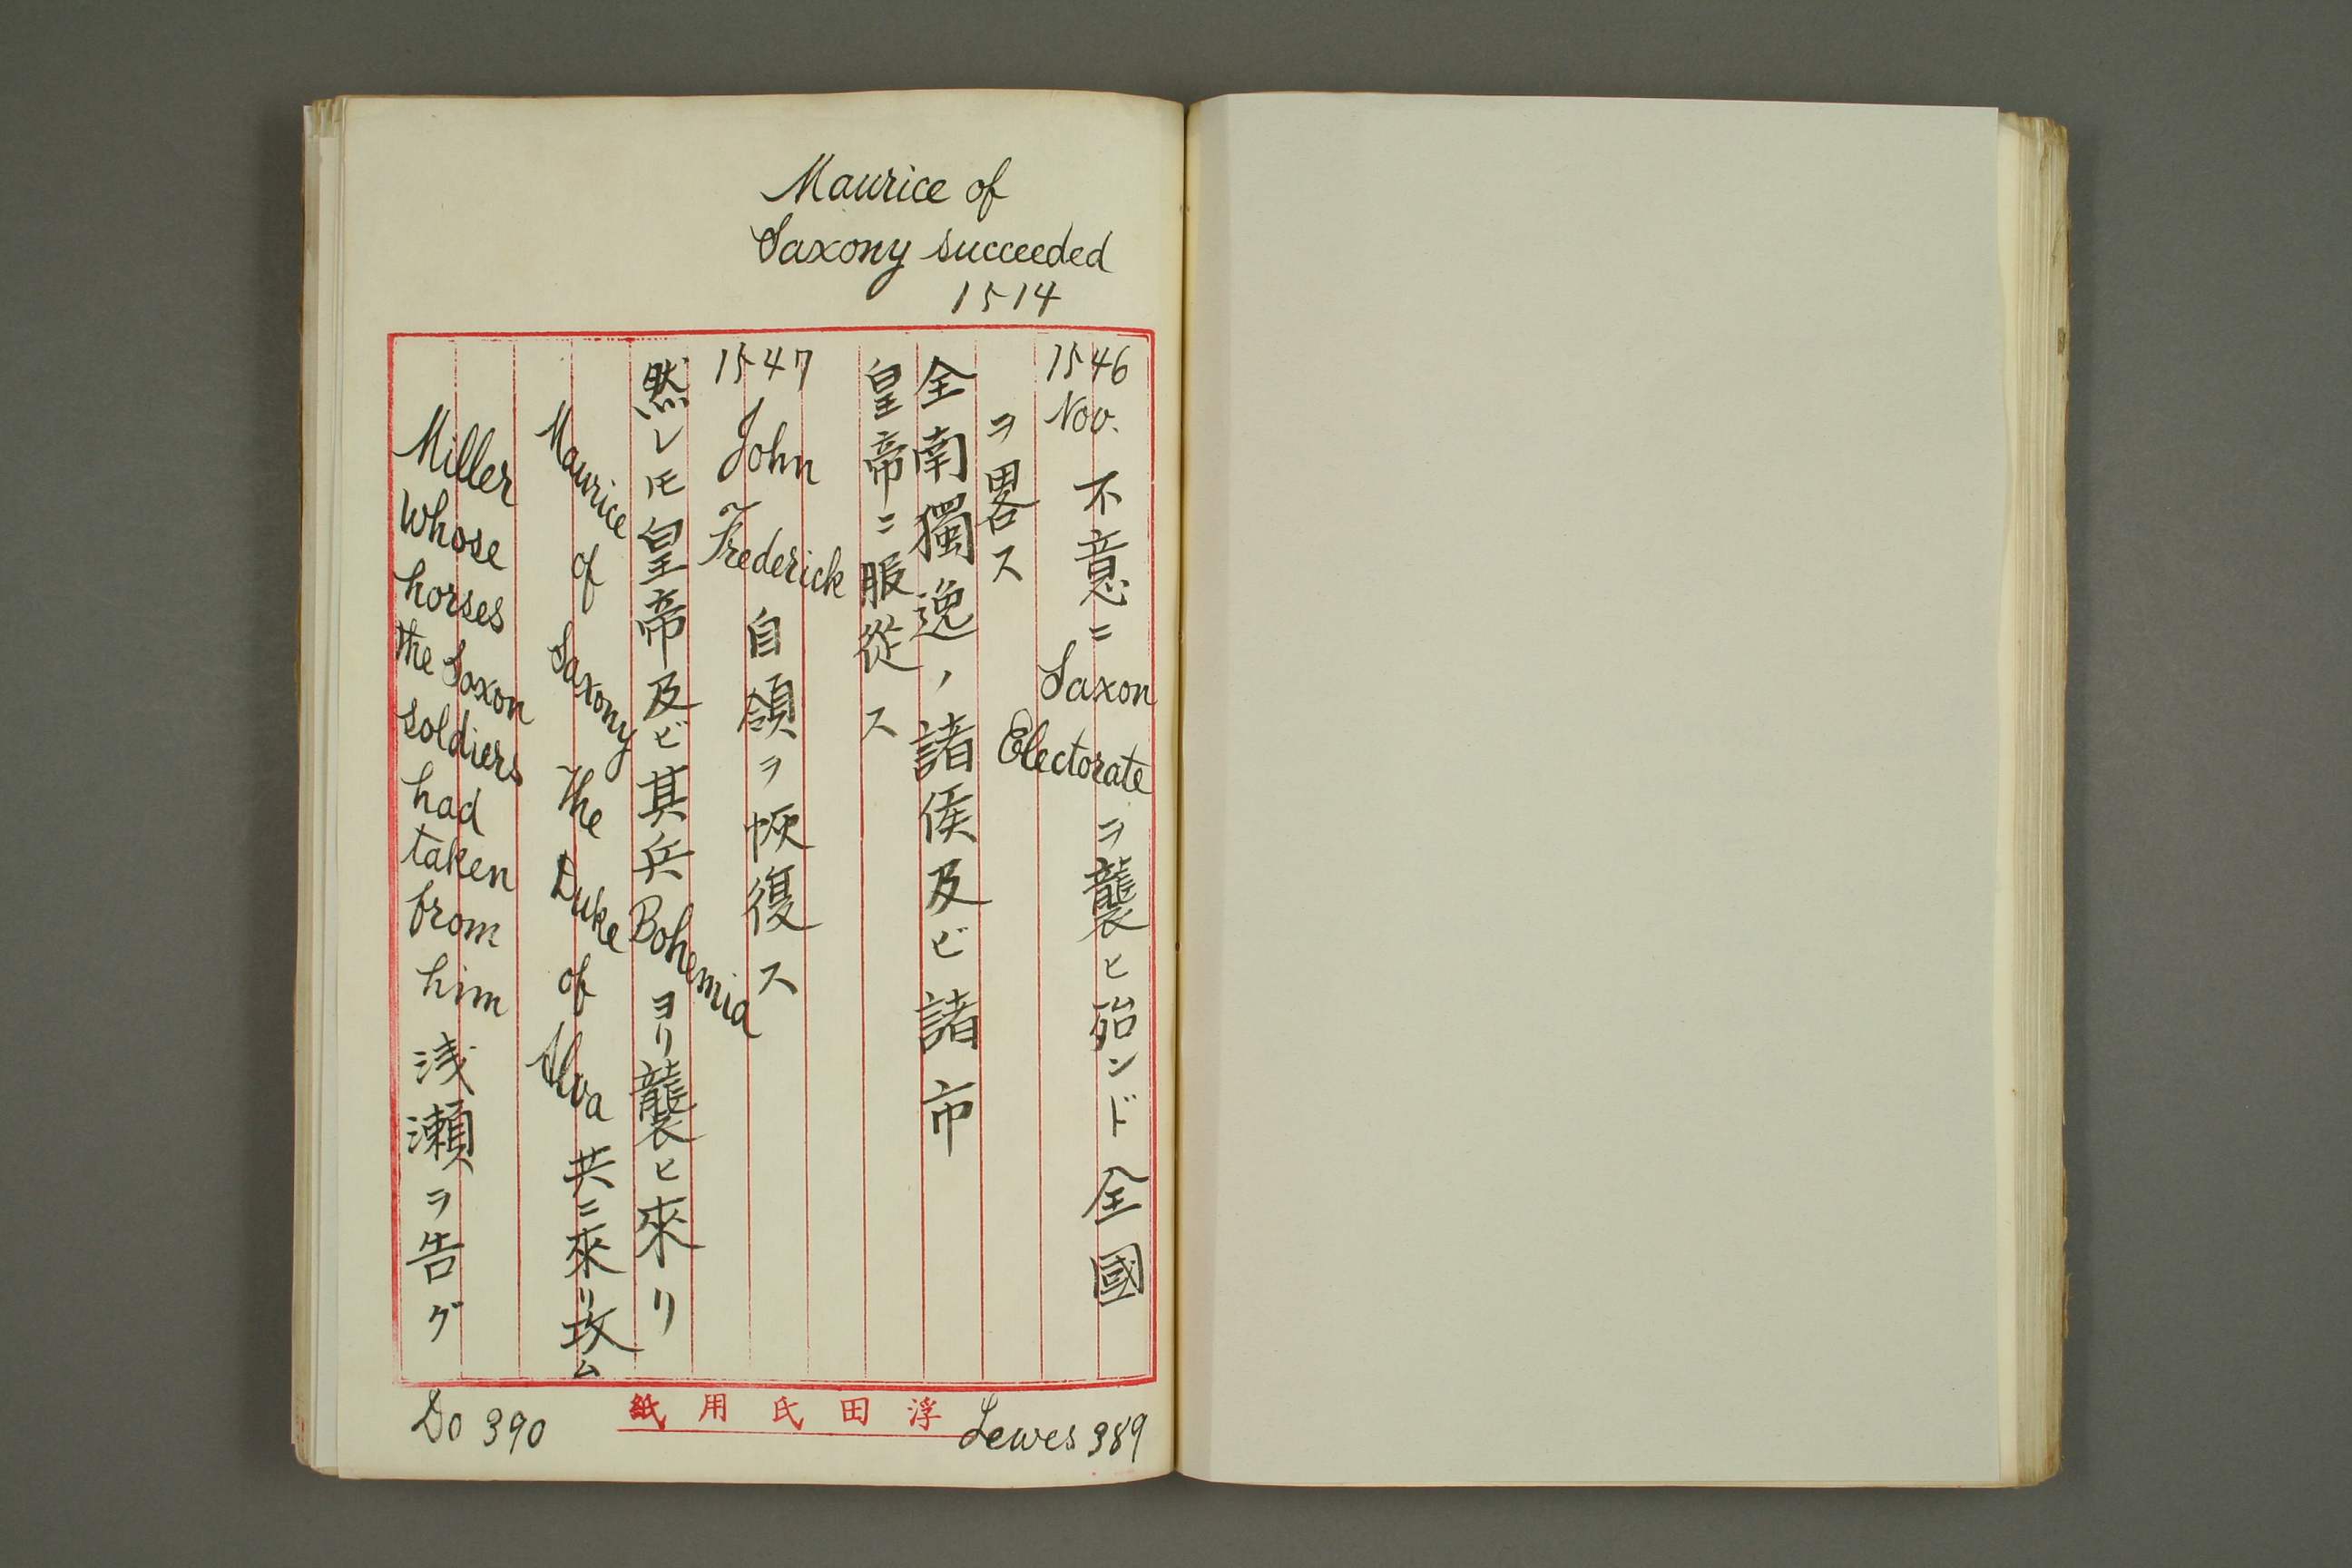 Maurice of
Saxony succeeded
1514
1546 Nov. 不意ニ Saxon Electorate ヲ襲ヒ殆ンド全國
ヲ畧ス
全南獨逸ノ諸侯及ビ諸市
皇帝ニ服從ス
1547 John Frederick 自領ヲ恢復ス
然レ𪜈皇帝及ビ其兵 Bohemia ヨリ襲ヒ來リ
Maurice of Saxony The Duke of Alva 共ニ來リ攻ム
Miller whose horses the Saxon soldiers had taken from him 浅瀬ヲ告グ
浮田氏用紙
Lewes 389
Do 390